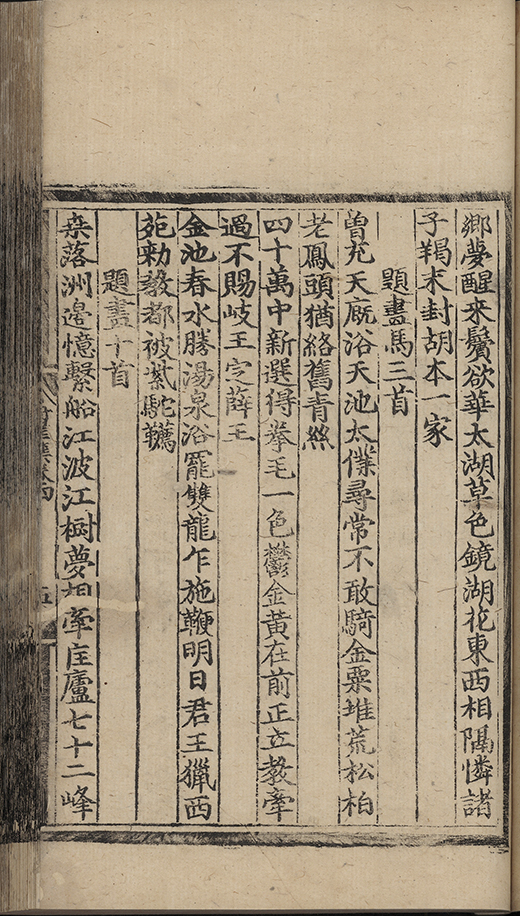 鄉夢醒來鬢欲華太湖草色鏡湖花東西相隔憐諸
子羯末封胡本一家
題畫馬三首
曾充天廐浴天池太僕尋常不敢騎金粟堆荒松柏
老鳳頭猶絡舊青絲
四十萬中新選得拳毛一色鬱金黃在前正立教牽
過不賜岐王定薛王
金池春水勝湯泉浴罷雙龍乍施鞭明日君王獵西
苑勑教都被紫駝韉
題畫十首
桒落洲邊憶繫船江波江樹夢相牽匡廬七十二峰
五